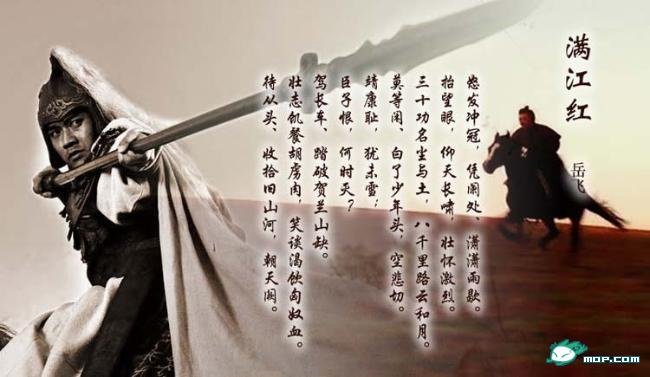 满江红
岳飞
怒发冲冠，凭阑处、潇潇雨歇。
抬望眼，仰天长啸，壮怀激烈。
三十功名尘与土，八千里路云和月。
莫等闲、白了少年头，空悲切。
靖康耻，犹未雪；
臣子恨，何时灭？
驾长车、踏破贺兰山缺。
壮志饥餐胡虏肉，笑谈渴饮匈奴血。
待从头、收拾旧山河，朝天阙。
MOP.COM